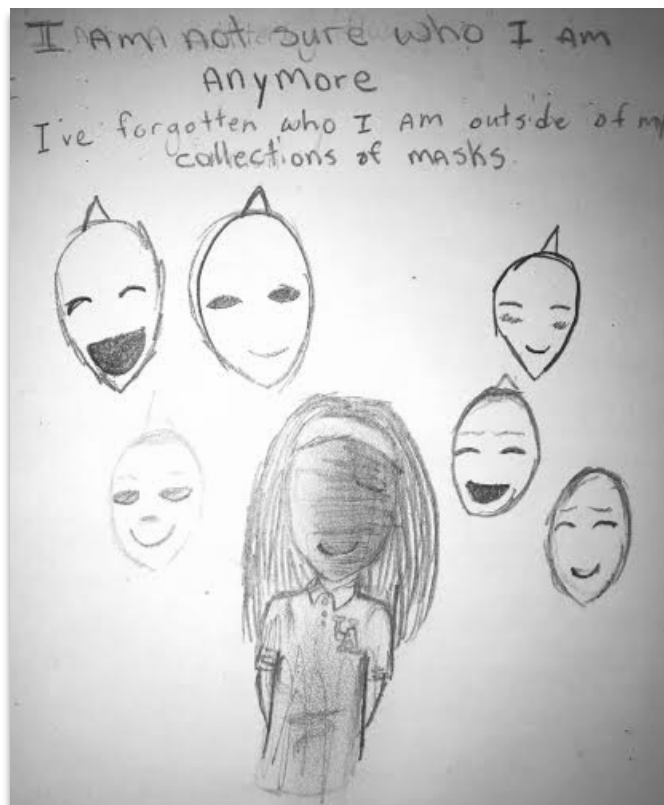 I AM not sure who I AM
ANymore
I've forgotten who I AM outside of my
collections of MASKS.